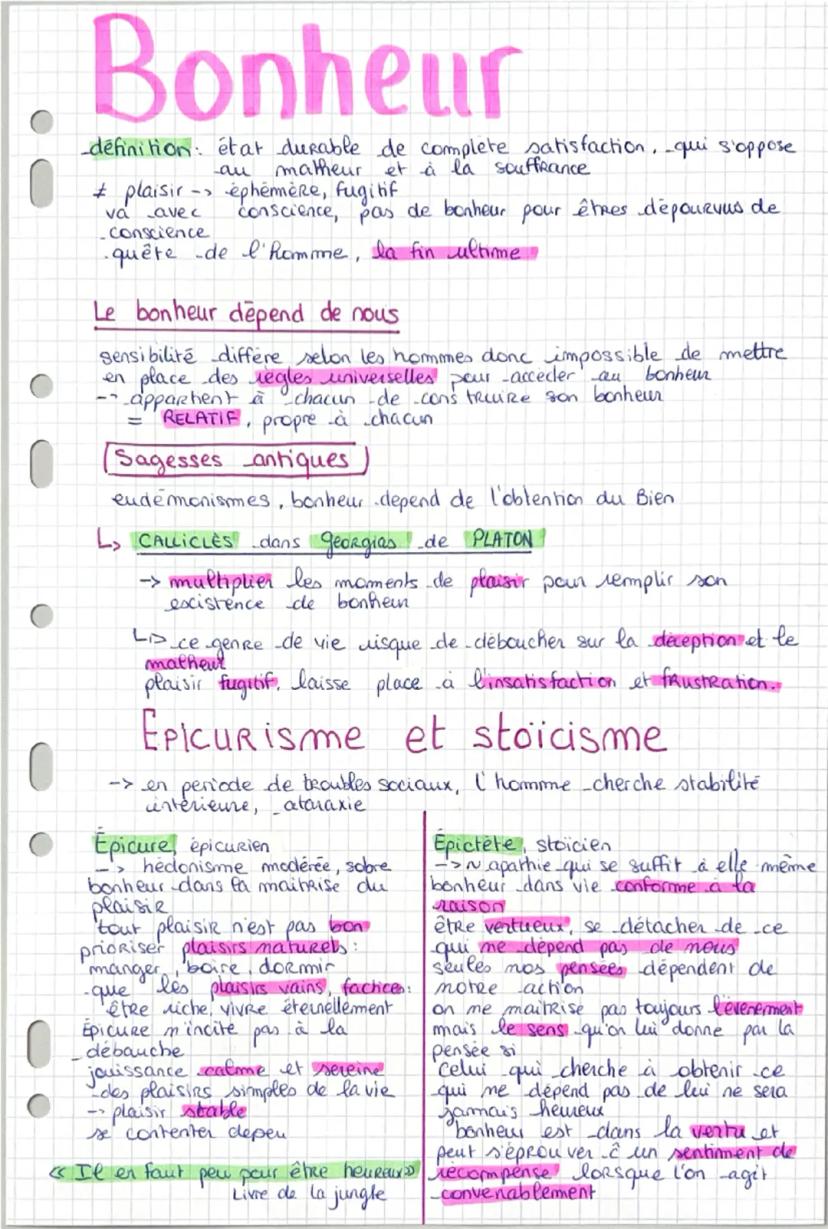 Bonheur
définition : état durable de complète satisfaction, qui s'oppose
au malheur et à la souffrance
≠ plaisir -> éphémère, fugitif
va avec conscience, pas de bonheur pour êtres dépourvus de
conscience
quête de l'homme, la fin ultime
Le bonheur dépend de nous
sensibilité diffère selon les hommes donc impossible de mettre
en place des règles universelles pour accéder au bonheur
-> appartient à chacun de construire son bonheur
= RELATIF, propre à chacun
Sagesses antiques
eudémonismes, bonheur depend de l'obtention du Bien
↳ CALLICLÈS dans Georgias de PLATON
-> multiplier les moments de plaisir pour remplir son
existence de bonheur
↳ ce genre de vie risque de déboucher sur la déception et le
malheur
plaisir fugitif, laisse place à l'insatisfaction et frustration.
Épicurisme et stoïcisme
-> en periode de troubles sociaux, l'homme cherche stabilité
intérieure, ataraxie
Épicure, épicurien
-> hédonisme modérée, sobre
bonheur dans la maitrise du
plaisir
tout plaisir n'est pas bon
prioriser plaisirs naturels :
manger, boire, dormir
que les plaisirs vains, factices :
être riche, vivre éternellement
Épicure n'incite pas à la
débauche
jouissance calme et sereine
des plaisirs simples de la vie
-> plaisir stable
se contenter depeu
« Il en faut peu pour être heureux »
Livre de la jungle
Épictète, stoïcien
-> ~ apathie qui se suffit à elle même
bonheur dans vie conforme à la
raison
être vertueux, se détacher de ce
qui ne dépend pas de nous
seules nos pensées dépendent de
notre action
on ne maitrise pas toujours l'évènement
mais le sens qu'on lui donne par la
pensée si
celui qui cherche à obtenir ce
qui ne dépend pas de lui ne sera
jamais heureux
bonheur est dans la vertu et
peut s'éprouver c un sentiment de
récompense lorsque l'on agit
convenablement